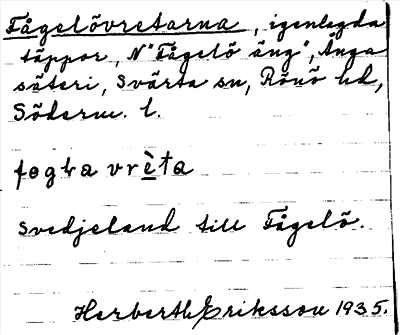 Fågelövretarna, igenlagda
täppor, N "Fågelö äng", Änga
säteri, Svärta sn, Rönö hd,
Söderm. l.
fogɫa vrèta
Svedjeland till Fågelö.
Herberth Eriksson 1935.